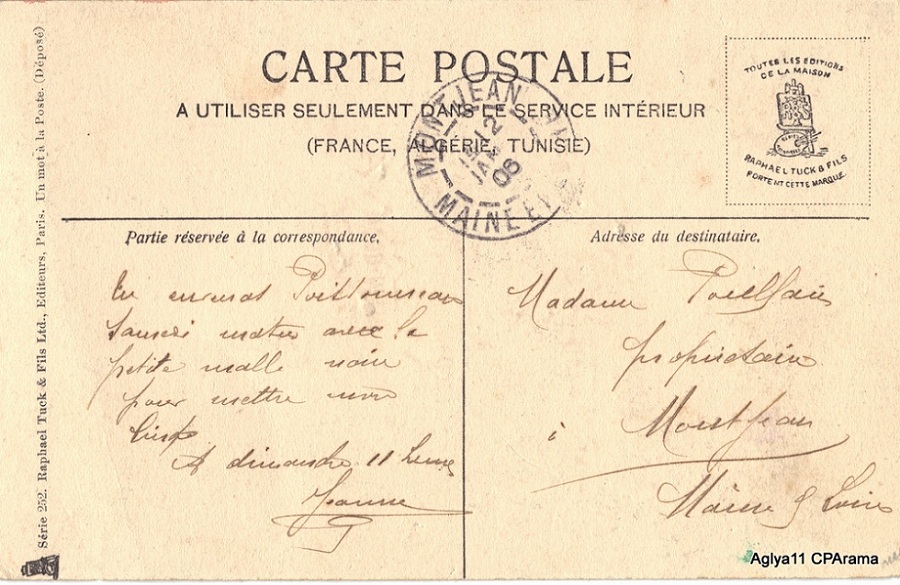 CARTE POSTALE
A UTILISER SEULEMENT DANS LE SERVICE INTÉRIEUR
(FRANCE, ALGÉRIE, TUNISIE)
TOUTES LES EDITIONS
DE LA MAISON
RAPHAEL TUCK & FILS
PORTENT CETTE MARQUE
MONTJEAN
MAINE ET
06
Série 252. Raphael Tuck & Fils Ltd., Editeurs, Paris. Un mot à la Poste. (Déposé)
Partie réservée à la correspondance.
matin avec la
petite malle noire
pour mettre mon
A dimanche 11 heures
Jeanne
Adresse du destinataire.
Madame
propriétaire
à Montjean
Maine & Loire
Aglya11 CPArama